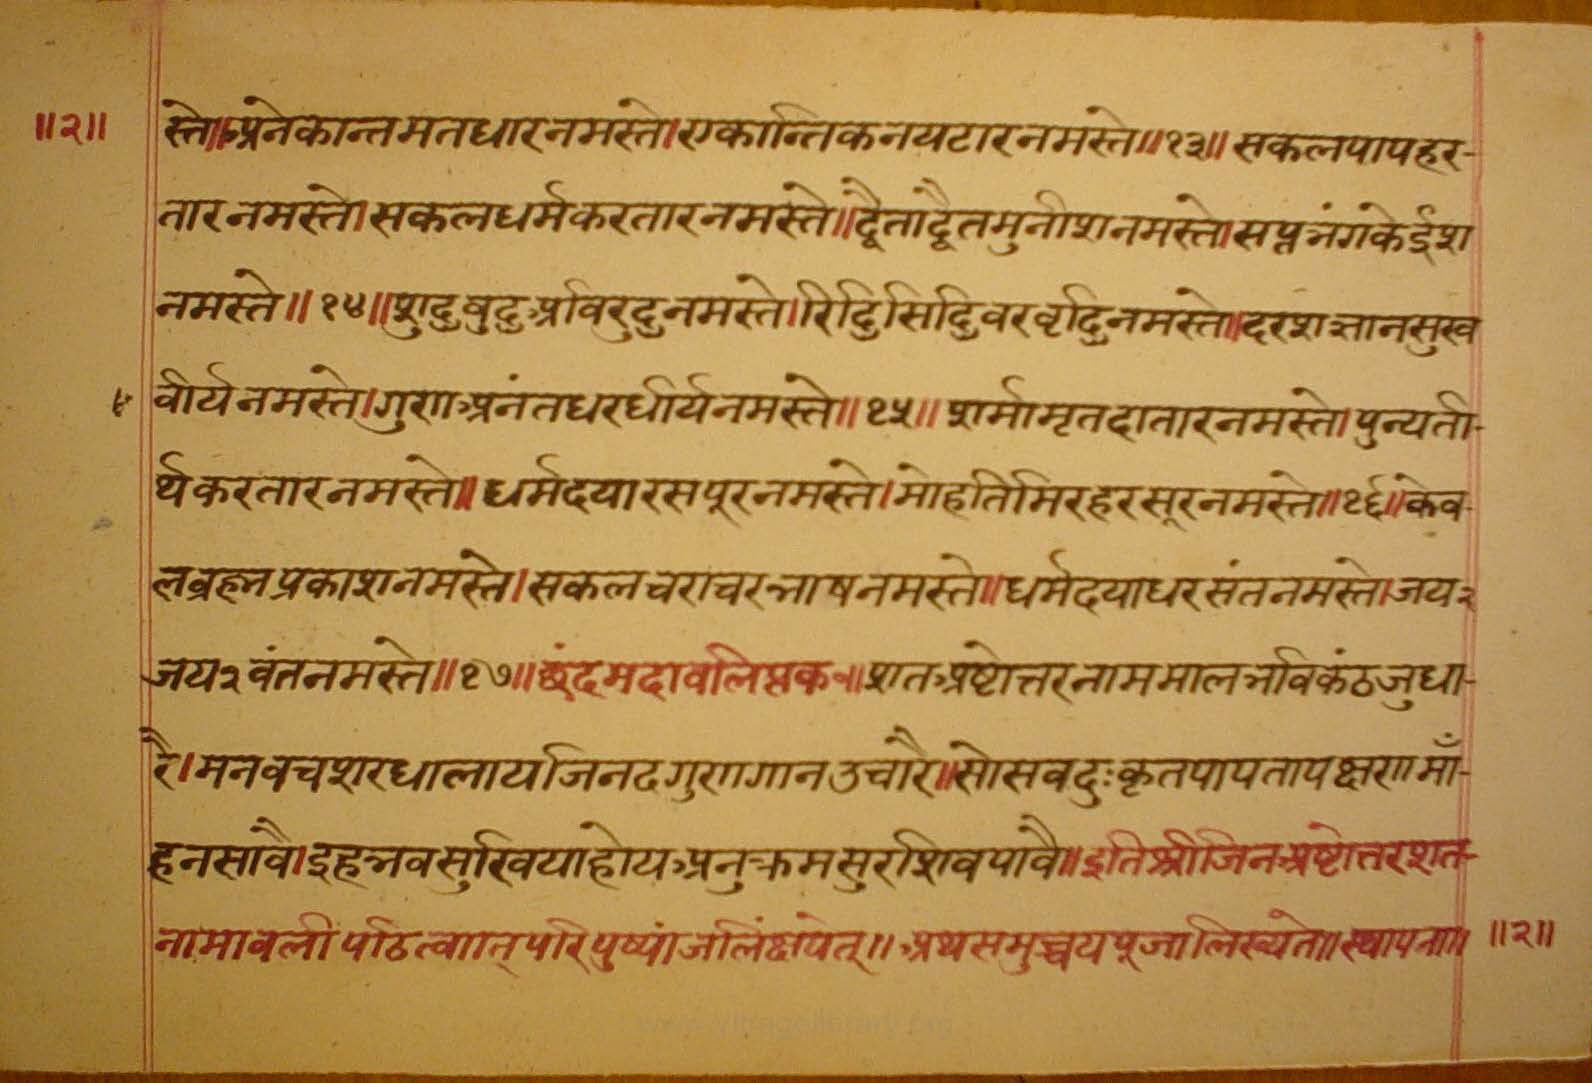 ॥२॥ स्ते॥अनेकान्तमतधारनमस्ते।एकान्तिकनयटारनमस्ते॥१३॥ सकलपापहर-
तारनमस्ते।सकलधर्मकरतारनमस्ते॥द्वैताद्वैतमुनीशनमस्ते।सप्तभंगकेईश
नमस्ते॥१४॥शुद्धबुद्धअविरुद्धनमस्ते।रिद्धिसिद्धिवरवृद्धिनमस्ते॥दरशज्ञानसुख
वीर्यनमस्ते।गुणअनंतधरधीर्यनमस्ते॥१५॥ शर्मामृतदातारनमस्ते।पुन्यती-
र्थकरतारनमस्ते॥धर्मदयारसपूरनमस्ते।मोहतिमिरहरसूरनमस्ते॥१६॥केव-
लब्रह्मप्रकाशनमस्ते।सकलचराचरभाषनमस्ते॥धर्मदयाधरसंतनमस्ते।जय२
जय२वंतनमस्ते॥१७॥छंदमदावलिप्तक॥शतअष्टोत्तरनाममालभविकंठजुधा-
रै।मनवचशरधालार्यजिनदगुणगानउचारै॥सोसवदुःकृतपापतापक्षणमाँ-
हनसावै।इहभवसुखियाहोयअनुक्रमसुरशिवपावै॥इतिश्रीजिनअष्टोत्तरशत-
नामावलीपठित्वाात्परिपुष्पांजलिंक्षपेत्॥ अथसमुच्चयपूजालिख्यते॥स्थापना॥ ॥२॥